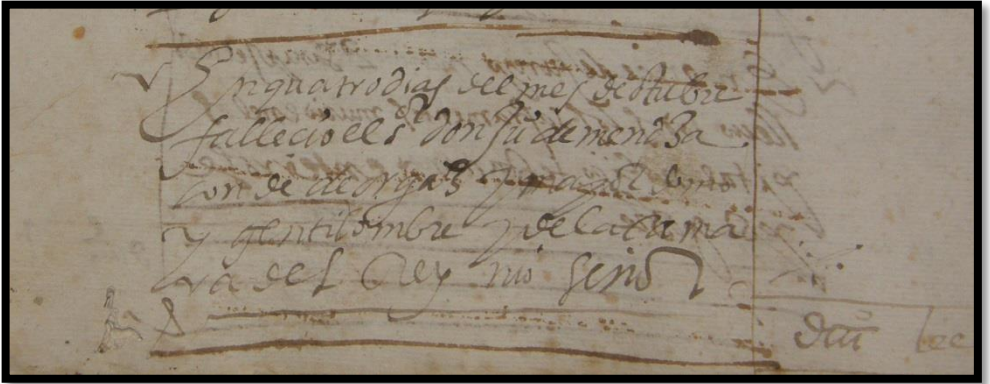 En quatro dias del mes de otubre
fallecio el sr don ju de mendoza
conde de orgaz y mayordomo
y gentilombre de la cama
ra del Rey nro señor